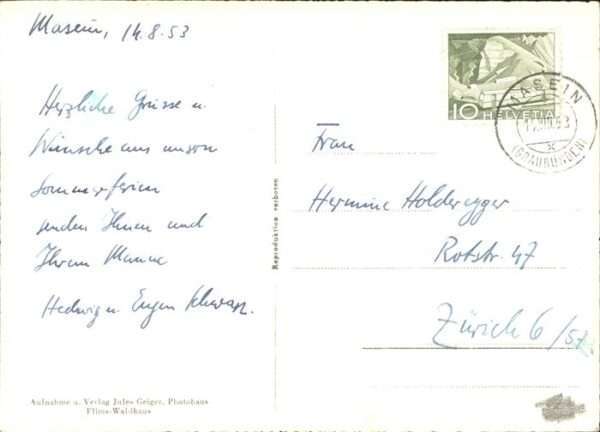 Masein, 14.8.53
Herzliche Grüsse u.
Wünsche aus unsern
Sommerferien
senden Ihnen und
Ihrem Manne
Hedwig u. Eugen Schwarz.
Aufnahme u. Verlag Jules Geiger, Photohaus
Flims-Waldhaus
Reproduktion verboten
10 HELVETIA
MASEIN
VIII.53
(GRAUBÜNDEN)
Frau
Hermine Holderegger
Rotstr. 47
Zürich 6/